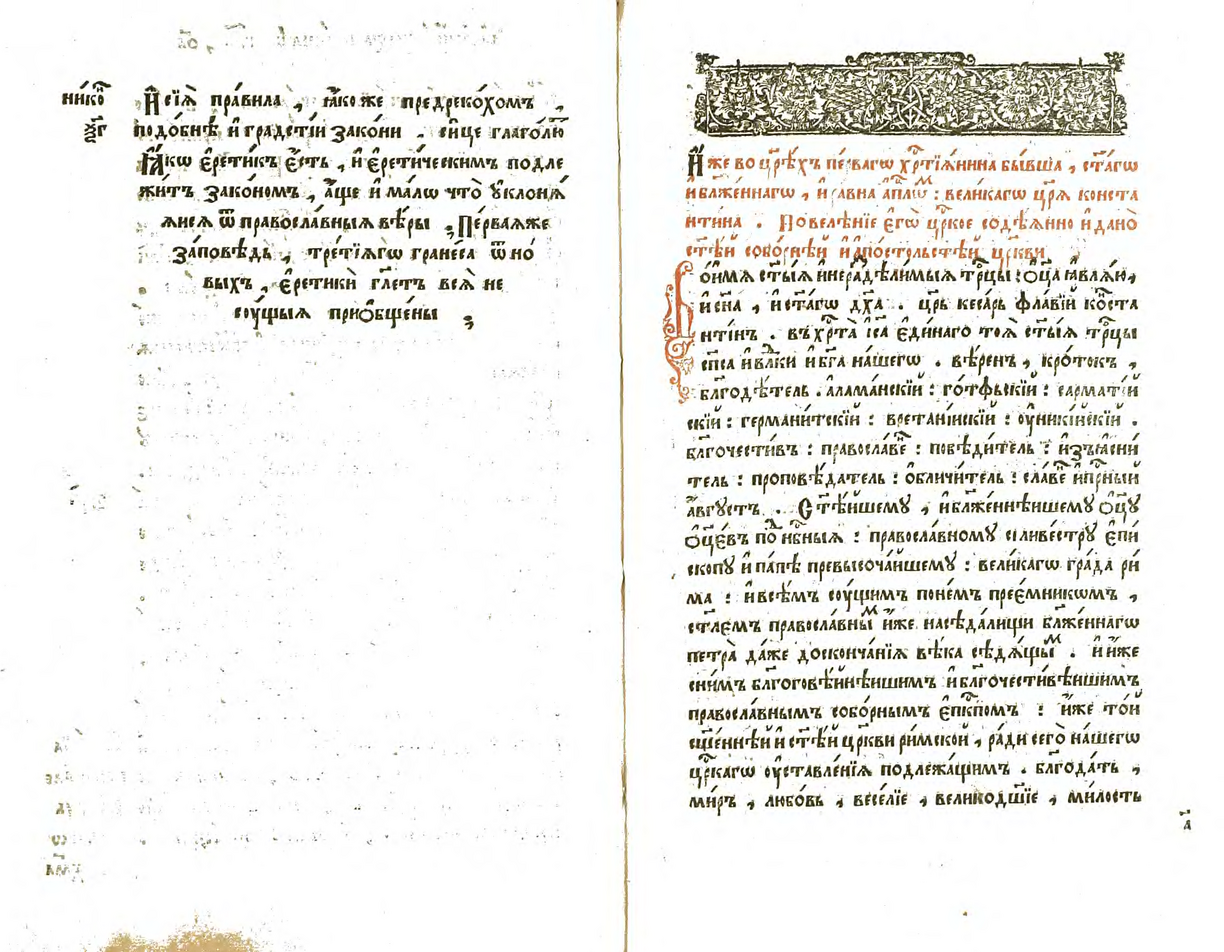 нико҄
ѯ҃г
И҆ сїѧ̀ пра́вила , ꙗ҆́коже предреко́хомъ ,
подо́бнѣ и҆ гра́дстїи зако́ни . си́це глаго́лю
Ꙗ҆́кѡ є҆рети́къ є҆́сть , и҆ є҆рети́ческимъ подле
жи́тъ зако́номъ , а҆́ще и҆ ма́лѡ что̀ ᲂуклонѧ́
ѧйсѧ ѿ правосла́вныѧ вѣ́ры , Пе́рваѧже
за́повѣдь , тре́тїѧгѡ гране́са ѿ но
выхъ , є҆ретикѝ гл҃етъ всѧ̀ не
сᲂу́щыѧ приѻбще́ны
И҆́же во цр҃ѣхъ пе́рвагѡ хрⷭ҇тїѧ́нина бы́вша , ст҃а́гѡ
и҆ блаже́ннагѡ , и҆ ра́вна а҆пⷭ҇лѡⷨ : вели́кагѡ цр҃ѧ̀ конста
нти́на . Повелѣ́нїе є҆гѡ̀ цр҃кое содѣ́ѧнно и҆ дано̀
ст҃ѣ́й собо́рнѣй и҆ а҆по́стольстѣй цр҃кви
Во и҆́мѧ ст҃ы́ѧ и҆ нераздѣли́мыѧ трⷪ҇цы : ѻ҆ц҃а̀ ꙗ҆влѧ́ю ,
и҆ сн҃а , и҆ ст҃а́гѡ дх҃а . цр҃ь ке́сарь фла́вїй кѡ́ста
нтїнъ . въ хрⷭ҇та̀ і҆с҃а є҆ди́наго тоѧ̀ ст҃ы́ѧ трⷪ҇цы
сп҃са и҆ влⷣки и҆ бг҃а на́шегѡ . вѣ́ренъ , кро́токъ ,
бл҃годѣ́тель . а҆лама́нскїй : го́тфьскїй : сарматі́й
скїй : герма́нитскїй : врета́нїискїй : ᲂу҆никі́искїй .
бл҃гочести́въ : правосла́веⷩ҇ : повѣди́тель : и҆зъꙗсни́
тель : проповѣ́датель : ѻ҆бличи́тель : сла́веⷩ҇ и҆ прⷭ҇ный
а҆́вгꙋстъ . Ст҃ѣ́йшемꙋ , и҆ блаже́ннѣйшемꙋ ѻ҆ц҃ꙋ̀
ѻ҆ц҃е́въ поⷣ нб҃ныѧ : правосла́вномꙋ силиве́стрꙋ є҆пи́
скопꙋ и҆ па́пѣ превысоча́йшемꙋ : вели́кагѡ гра́да ри́
ма : и҆ всѣ́мъ сᲂу́щимъ по не́мъ прее́мникѡмъ ,
ст҃лемъ правосла́вныⷨ и҆́же на сѣда́лищи бл҃же́ннагѡ
петра̀ да́же до сконча́нїѧ вѣ́ка сѣдѧ́щыⷨ . и҆ и҆́же
с ни́мъ бл҃гоговѣ́йнѣйшимъ и҆ бл҃гочести́вѣйшимъ
правосла́внымъ собо́рнымъ є҆пⷭ҇кпомъ : и҆́же то́й
сщ҃е́ннѣй и҆ ст҃ѣ́й цр҃кви ри́мской , ра́ди сего̀ на́шегѡ
цр҃кагѡ ᲂу҆ставле́нїѧ подлежа́щимъ . бл҃года́ть ,
ми́ръ , любо́вь , весе́лїе , великодш҃їе , ми́лость
а҃